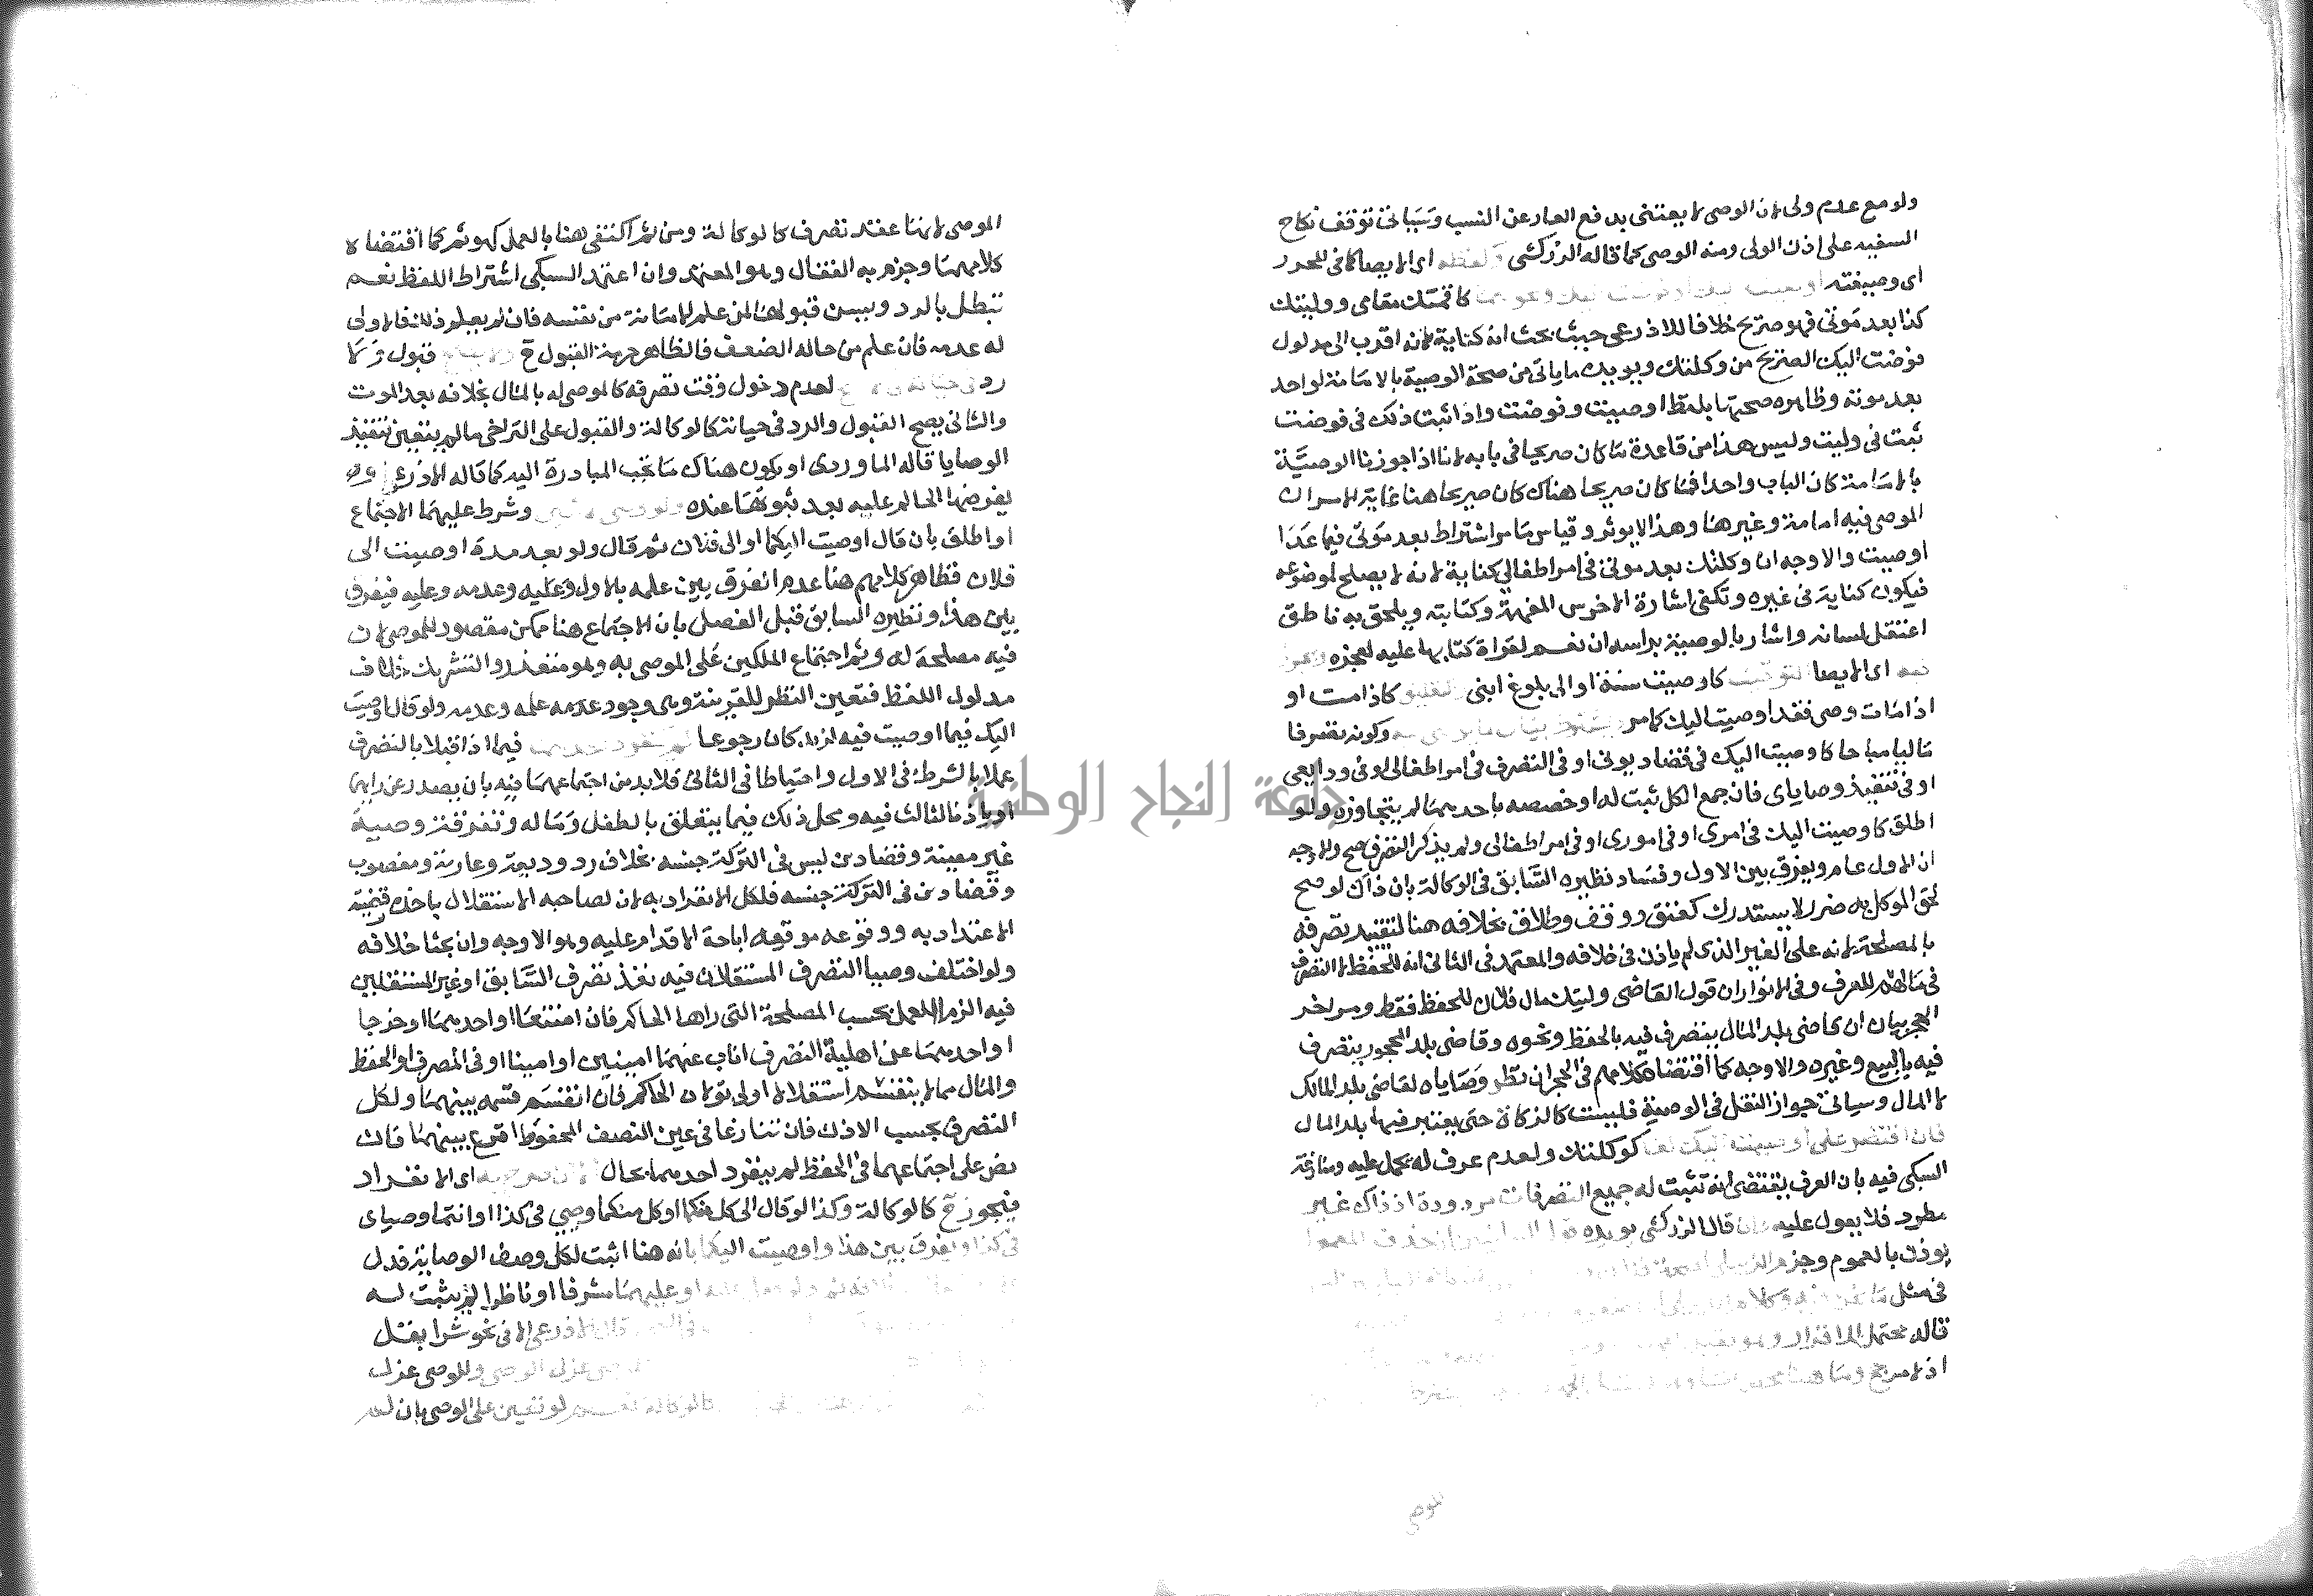 ولو مع عدم ولى لان الوصى لا يعتنى بدفع العار عن النسب وسياتى توقف نكاح
السفيه على اذن الولى ومنه الوصى كما قاله الزركشى ولفظه اى الايصا كما فى المحرر
اى وصيغته اوصيت اليك او فوضت اليك ونحوهما كاقمتك مقامى ووليتك
كذا بعد موتى فهو صريح خلافا للاذرعى حيث بحث انه كناية لانه اقرب الى مدلول
فوضت اليك الصريح من وكلتك ويويده ماياتى من صحة الوصية بالامامة لواحد
بعد موته وظاهره صحتها بلفظ اوصيت وفوضت واذا ثبت ذلك فى فوضت
ثبت فى وليت وليس هذا من قاعدة ما كان صريحا فى بابه لانا اذا جوزنا الوصية
بالامامة كان الباب واحدا فما كان صريحا هناك كان صريحا هنا غاية الامر ان
الموصى فيه امامة وغيرها وهذا لا يوثر وقياس مامر اشتراط بعد موتى فيما عدا
اوصيت والاوجه ان وكلتك بعد موتى فى امر اطفالى كناية لانه لا يصلح لموضوعه
فيكون كناية فى غيره وتكفى اشارة الاخرس المفهمة وكتابته ويلحق به ناطق
اعتقل لسانه واشار بالوصية براسه ان نعم لقراة كتابها عليه لعجزه ويجوز
فيه اى الايصا التوقيت كاوصيت سنة او الى بلوغ ابنى والتعليق كاذا مت او
اذا مات وصى فقد اوصيت اليك كمامر ويشترط بيان ما يوصى فيه وكونه تصرفا
ماليا مباحا كاوصيت اليك فى قضا ديونى او فى التصرف فى امر اطفالى او فى ودايعى
او فى تنفيذ وصاياى فان جمع الكل ثبت له او خصصه باحديهما لم يتجاوزه ولو
اطلق كاوصيت اليك فى امرى او فى امورى او فى امر اطفالى ولم يذكر التصرف صح والاوجه
ان الاول عام ويفرق بين الاول وفساد نظيره السابق فى الوكالة بان ذاك لو صح
لحق الموكل به ضرر لا يستدرك كعتق ووقف وطلاق بخلافه هنا لتقييد تصرفه
بالمصلحة لانه على الغير الذى لم ياذن فى خلافه والمعتمد فى الثانى انه للحفظ لا التصرف
فى مالهم للعرف وفى الانوار ان قول القاضى وليتك مال فلان للحفظ فقط ومر اخر
الحجر بيان ان قاضى بلد المال يتصرف فيه بالحفظ ونحوه وقاضى بلد المحجور يتصرف
فيه بالبيع وغيره والاوجه كما اقتضاه كلامهم فى الحجر ان نظر وصاياه لقاضى بلد المالك
لا المال وسياتى جواز النقل فى الوصية فليست كالزكاة حتى يعتبر فيها بلد المال
فان اقتصر على اوصيت اليك لغا كوكلتك ولعدم عرف له يحمل عليه ومنازعة
السبكى فيه بان العرف يقتضى انه تثبت له جميع التصرفات مردودة اذ ذاك غير
مطرد فلا يعول عليه قال الزركشى يويده
يوذن بالعموم وجزم
فى مثل
قاله محتمل
اذ لا مرجح وما هنا
للوصى
الموصى لانها عقد تصرف كالوكالة ومن ثم اكتفى هنا بالعمل كهو ثم كما اقتضاه
كلامهما وجزم به القفال وهو المعتمد وان اعتمد السبكى اشتراط اللفظ نعم
تبطل بالرد ويسن قبولها لمن علم الامانة من نفسه فان لم يعلم ذلك فالاولى
له عدمه فان علم من حاله الضعف فالظاهر حرمة القبول ح ولا يصح قبول ولا
رد فى حياته فى الاصح لعدم دخول وقت تصرفه كالموصى له بالمال بخلافه بعد الموت
والثانى يصح القبول والرد فى حياته كالوكالة والقبول على التراخى ما لم يتعين تنفيذ
الوصايا قاله الماوردى او يكون هناك ما تجب المبادرة اليه كما قاله الاذرعى او
يعرضها الحاكم عليه بعد ثبوتها عنده ولو وصى اثنين وشرط عليهما الاجتماع
او اطلق بان قال اوصيت اليكما او الى فلان ثم قال ولو بعد مدة اوصيت الى
فلان فظاهر كلامهم هنا عدم الفرق بين علمه بالاول وعليه وعدمه وعليه فيفرق
بين هذا ونظيره السابق قبل الفصل بان الاجتماع هنا ممكن مقصود للموصى لان
فيه مصلحة له وثم اجتماع الملكين على الموصى به وهو متعذر والتشريك خلاف
مدلول اللفظ فتعين النظر للقرينة وهى وجود عدمه علمه وعدمه ولو قال اوصيت
اليك فيما اوصيت فيه لزيد كان رجوعا لم ينفرد احدهما فيما اذا قبلا بالتصرف
عملا بالشرط فى الاول واحتياطا فى الثانى فلا بد من اجتماعهما فيه بان يصدر عن رايهما
او ياذنا لثالث فيه ومحل ذلك فيما يتعلق بالطفل وماله وتفرقة وصية
غير معينة وقضا دين ليس فى التركة جنسه بخلاف رد وديعة وعارية ومغصوب
وقضا دين فى التركة جنسه فلكل الانفراد به لان لصاحبه الاستقلال باخذه وقضيته
الاعتداد به ووقوعه موقعه اباحة الاقدام عليه وهو الاوجه وان بحثا خلافه
ولو اختلف وصيا التصرف المستقلان فيه نفذ تصرف السابق او غير المستقلين
فيه الزما العمل بحسب المصلحة التى راها الحاكم فان امتنعا او احدهما او خرجا
او احدهما عن اهلية التصرف اناب عنهما امينين او امينا او فى المصرف او الحفظ
والمال مما لا ينقسم استقلالا اولى تولاه الحاكم فان انقسم قسمه بينهما ولكل
التصرف بحسب الاذن فان تنازعا فى عين النصف المحفوظ اقرع بينهما فان
نص على اجتماعهما فى الحفظ لم ينفرد احدهما بحال الا ان صرح به اى الانفراد
فيجوز ح كالوكالة وكذا لو قال الى كل منكما او كل منكما وصيى فى كذا او انتما وصياى
فى كذا ويفرق بين هذا واوصيت اليكما بانه هنا اثبت لكل وصف الوصاية فدل
او عليهما مشرفا او ناظرا لم يثبت له
قال الاذرعى الا فى نحو شرا بقل
عزل الوصى وللموصى عزل
كالوكالة نعم لو تعين على الوصى بان لم